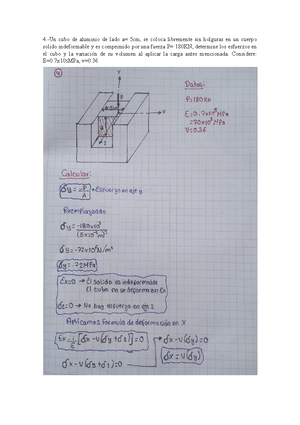 4.-Un cubo de aluminio de lado a= 5cm, se coloca libremente sin holguras en un cuerpo
solido indeformable y es comprimido por una fuerza P= 180KN, determine los esfuerzos en
el cubo y la variación de su volumen al aplicar la carga antes mencionada. Considere:
E=0.7x106MPa, v=0.36
4
Y
P
a=5cm
X
Z
Datos:
P=180KN
E=0.7x10⁵MPa
=70x10³MPa
V=0.36
Calcular:
σy = -P/A → Esfuerzo en eje y
Reemplazando
σy = -180x10³/(5x10⁻²m)²
σy = -72x10⁶N/m²
σy = -72MPa
εx=0 → El solido es indeformable
El cubo no se deforma en Ex
σz=0 → No hay esfuerzo en eje z
Aplicamos Formula de deformación en X
εx = 1/E [σx - V(σy+σz)] = 0
σx - V(σy+σz)=0
σx - V(σy)=0
σx = V(σy)